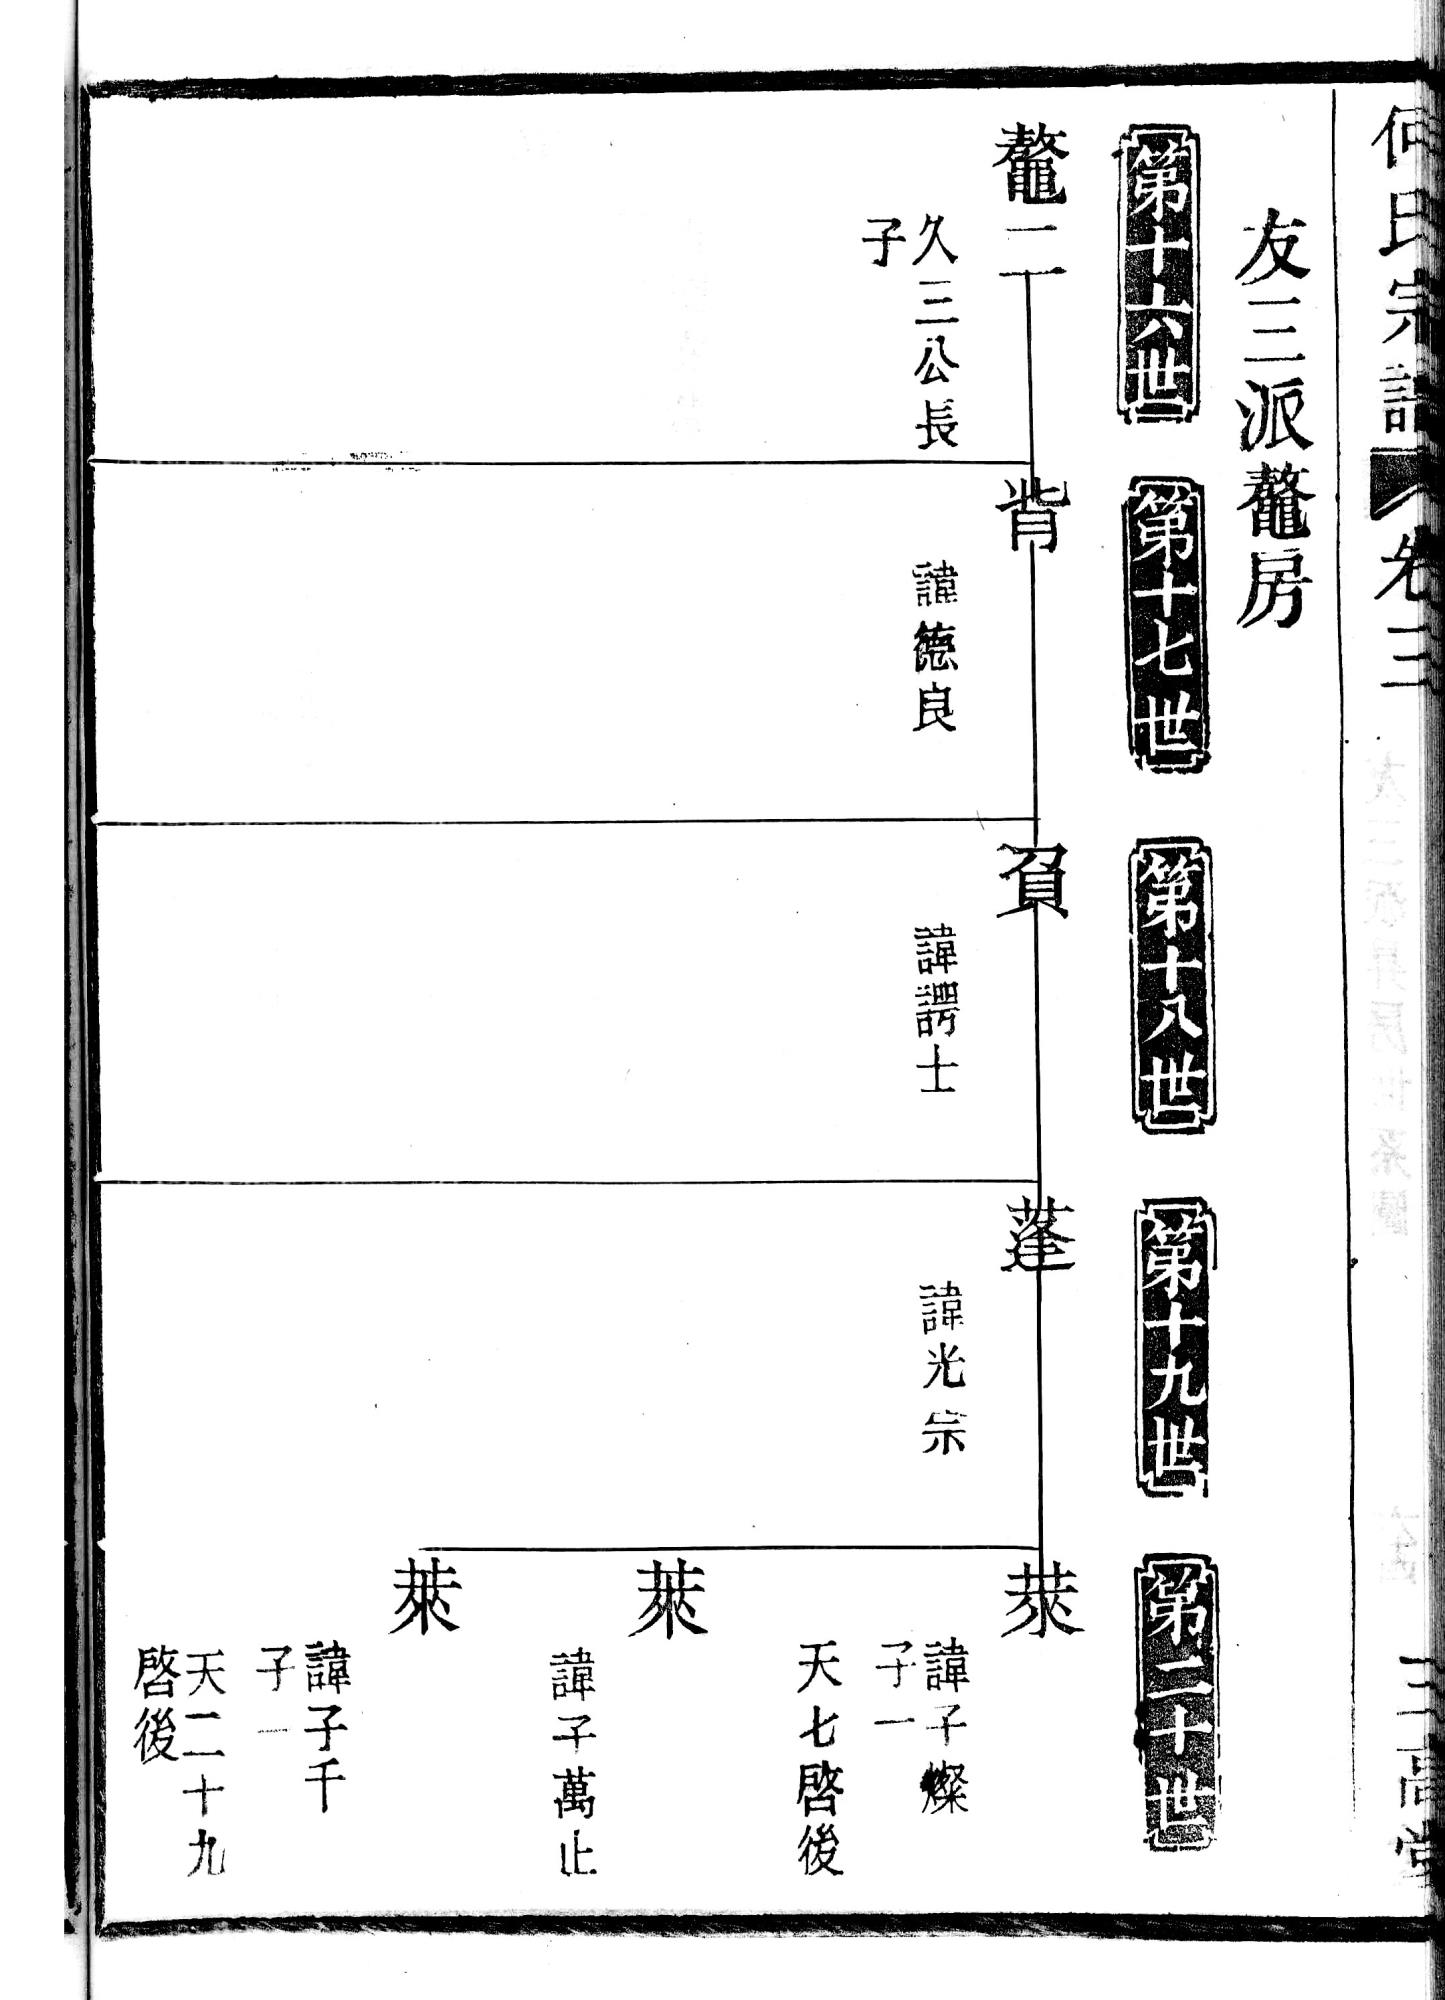 何氏宗譜 卷三
三高堂
友三派鼇房
第十六世
鼇二
久三公長
子
第十七世
背
諱德良
第十八世
負
諱諤士
第十九世
蓬
諱光宗
第二十世
萊
諱子燦
子一
天七啓後
萊
諱子萬止
萊
諱子千
子一
天二十九
啓後